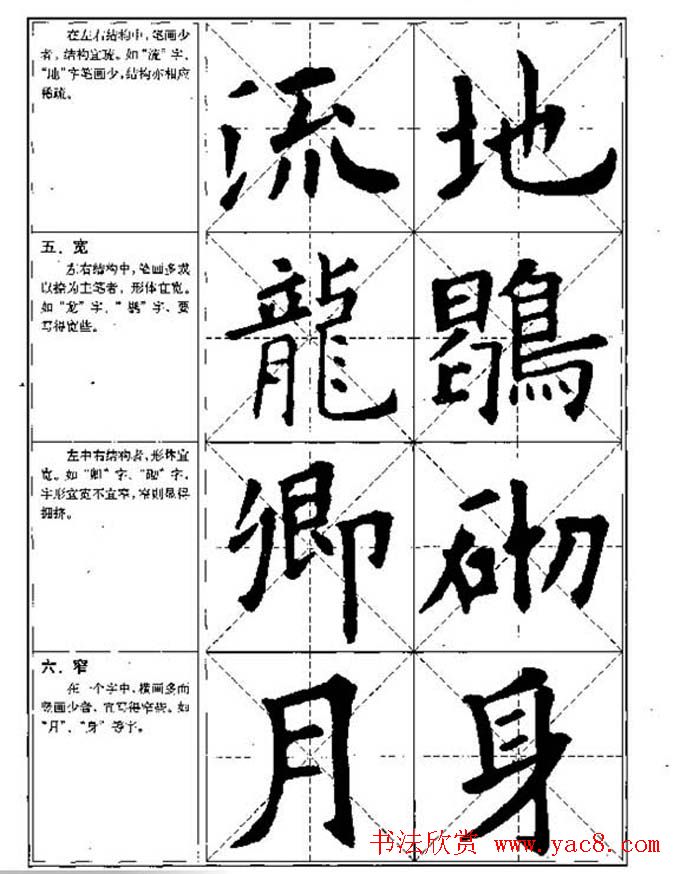 在左右结构中，笔画少
者，结构宜疏。如“流”字、
“地”字笔画少，结构亦相应
稀疏。
流 地
五．宽
左右结构中，笔画多或
以捺为主笔者，形体宜宽。
如“龙”字，“ ”字、要
写得宽些。
龍
左中右结构者，形体宜
宽。如“卿”字、“砌”字，
字形宜宽不宜窄，窄则显得
拥挤。
卿 砌
六．窄
在一个字中，横画多而
竖画少者，宜写得窄些。如
“月”、“身”等字。
月 身
书法欣赏 www.yac8.com